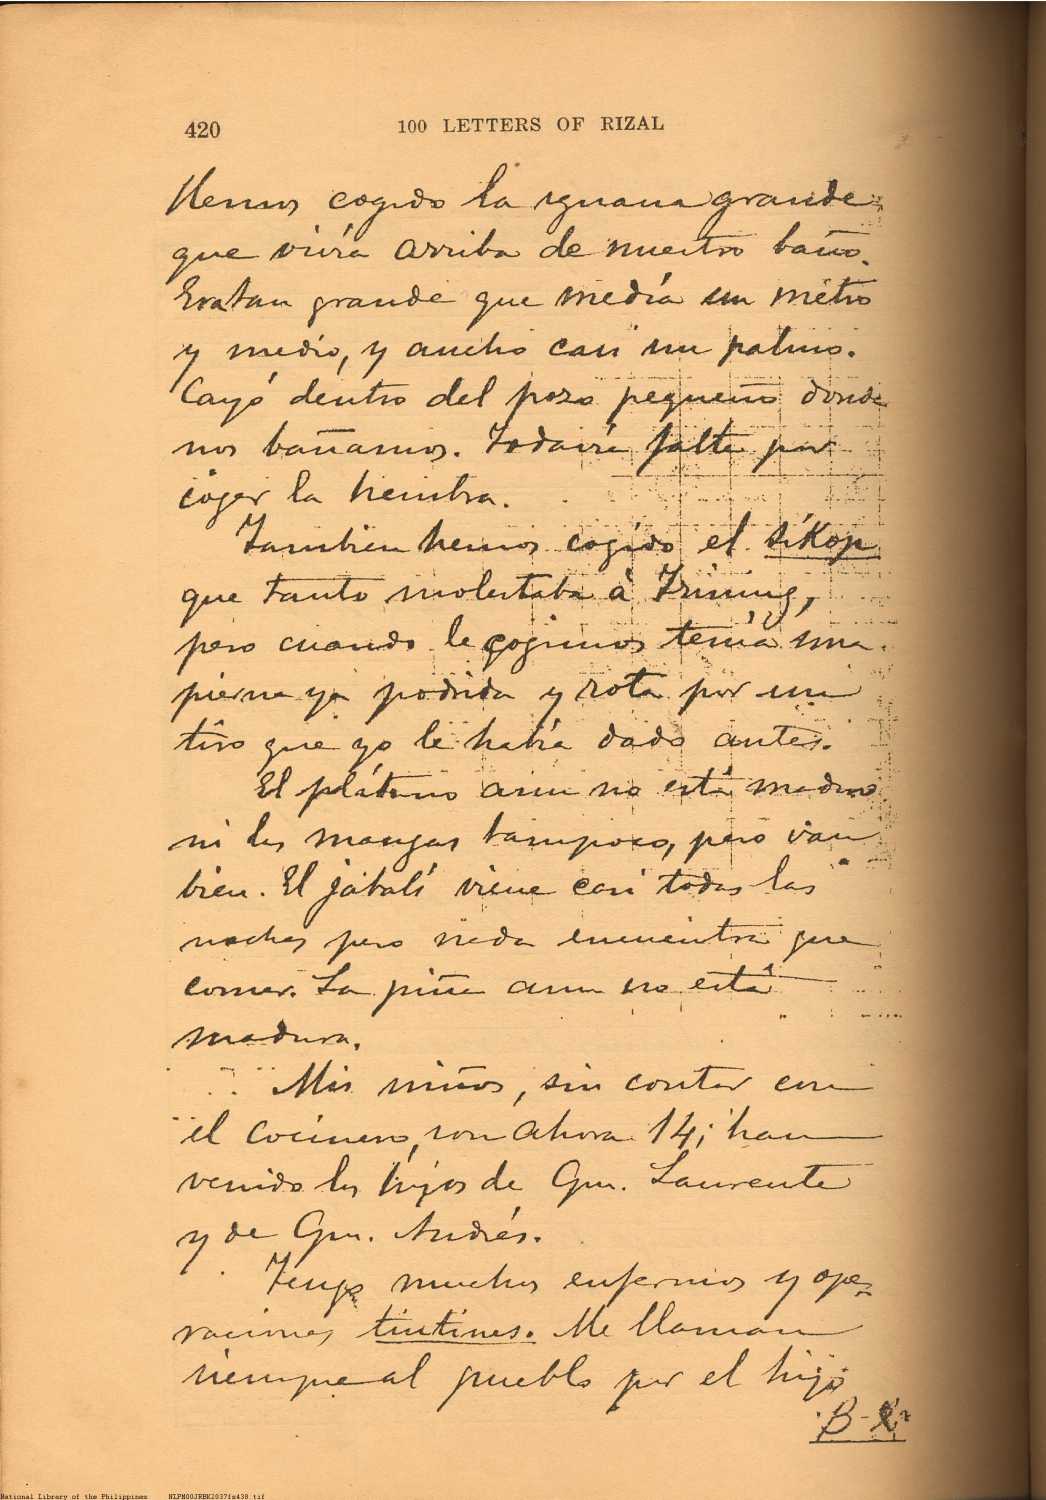 420 100 LETTERS OF RIZAL
Hemos cogido la iguana grande
que vivía arriba de nuestro baño.
Era tan grande que medía un metro
y medio, y ancho casi un palmo.
Cayó dentro del pozo pequeño donde
nos bañamos. Todavía falta por
coger la hembra.
Tambien hemos cogido el síkop
que tanto molestaba á Trining,
pero cuando le cogimos tenía una
pierna ya podrida y rota por un
tiro que yo le había dado antes.
El plátano aun no está maduro
ni las mangas tampoco, pero van
bien. El jabalí viene casi todas las
noches pero nada encuentra que
comer. La piña aun no está
madura.
Mis niños, sin contar con
el cocinero, son ahora 14; han
venido los hijos de Gm. Laurente
y de Gm. Andrés.
Tengo muchos enfermos y ope-
raciones tintines. Me llaman
siempre al pueblo por el hijo
National Library of the Philippines NLPM00JRBK2037fs438.tif